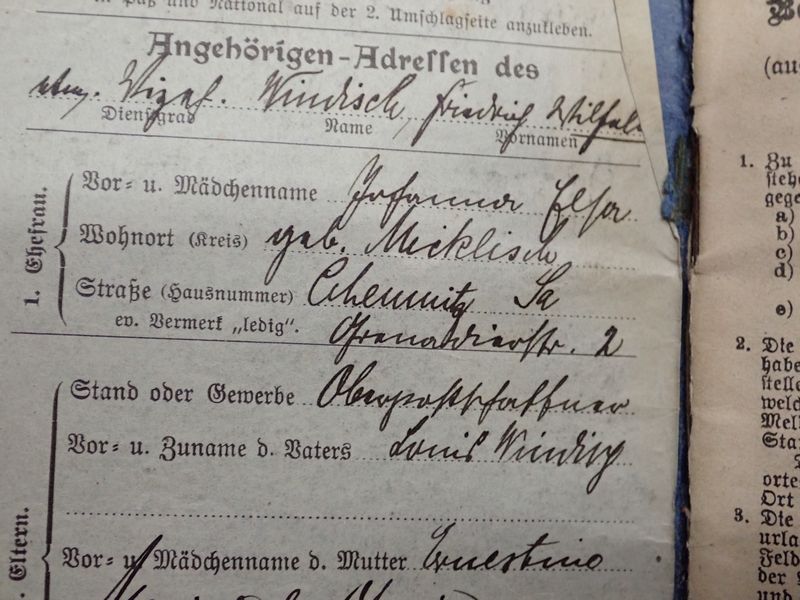 in Paß und National auf der 2. Umschlagseite anzukleben.
Angehörigen-Adressen des
Windisch, Friedrich
Dienstgrad Name Vornamen
1. Ehefrau.
Vor- u. Mädchenname Johanna Elsa
Wohnort (Kreis) geb. Micklisch
Straße (Hausnummer) Chemnitz Sa
ev. Vermerk „ledig“. Grenadierstr. 2
Eltern.
Stand oder Gewerbe Oberpostschaffner
Vor- u. Zuname d. Vaters Louis Windisch
Vor- u. Mädchenname d. Mutter Ernestine
(au
1. Zu
stehe
gege
a)
b)
c)
d)
e)
2. Die
habe
stelle
welch
Mel
Sta
orte
Ort
3. Die
urla
Feld
der
und